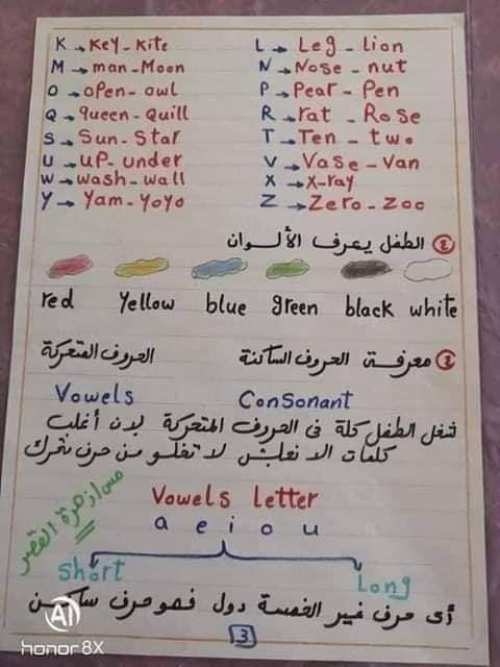 K → Key - Kite
L → Leg - lion
M → man - Moon
N → Nose - nut
O → open - owl
P → Pear - Pen
Q → queen - Quill
R → rat - Rose
S → Sun - Star
T → Ten - two
U → up - under
V → Vase - Van
W → wash - wall
X → X-ray
Y → Yam - yoyo
Z → Zero - Zoo
٤ الطفل يعرف الألوان
red Yellow blue green black white
٤ معرفة الحروف الساكنة الحروف المتحركة
Vowels Consonant
شغل الطفل كلة فى الحروف المتحركة لأن أغلب
كلمات الانجلش لا تخلو من حرف متحرك
مس / زهرة القصر
Vowels letter
a e i o u
Short Long
أى حرف غير الخمسة دول فهو حرف ساكن
3
AI
honor 8X